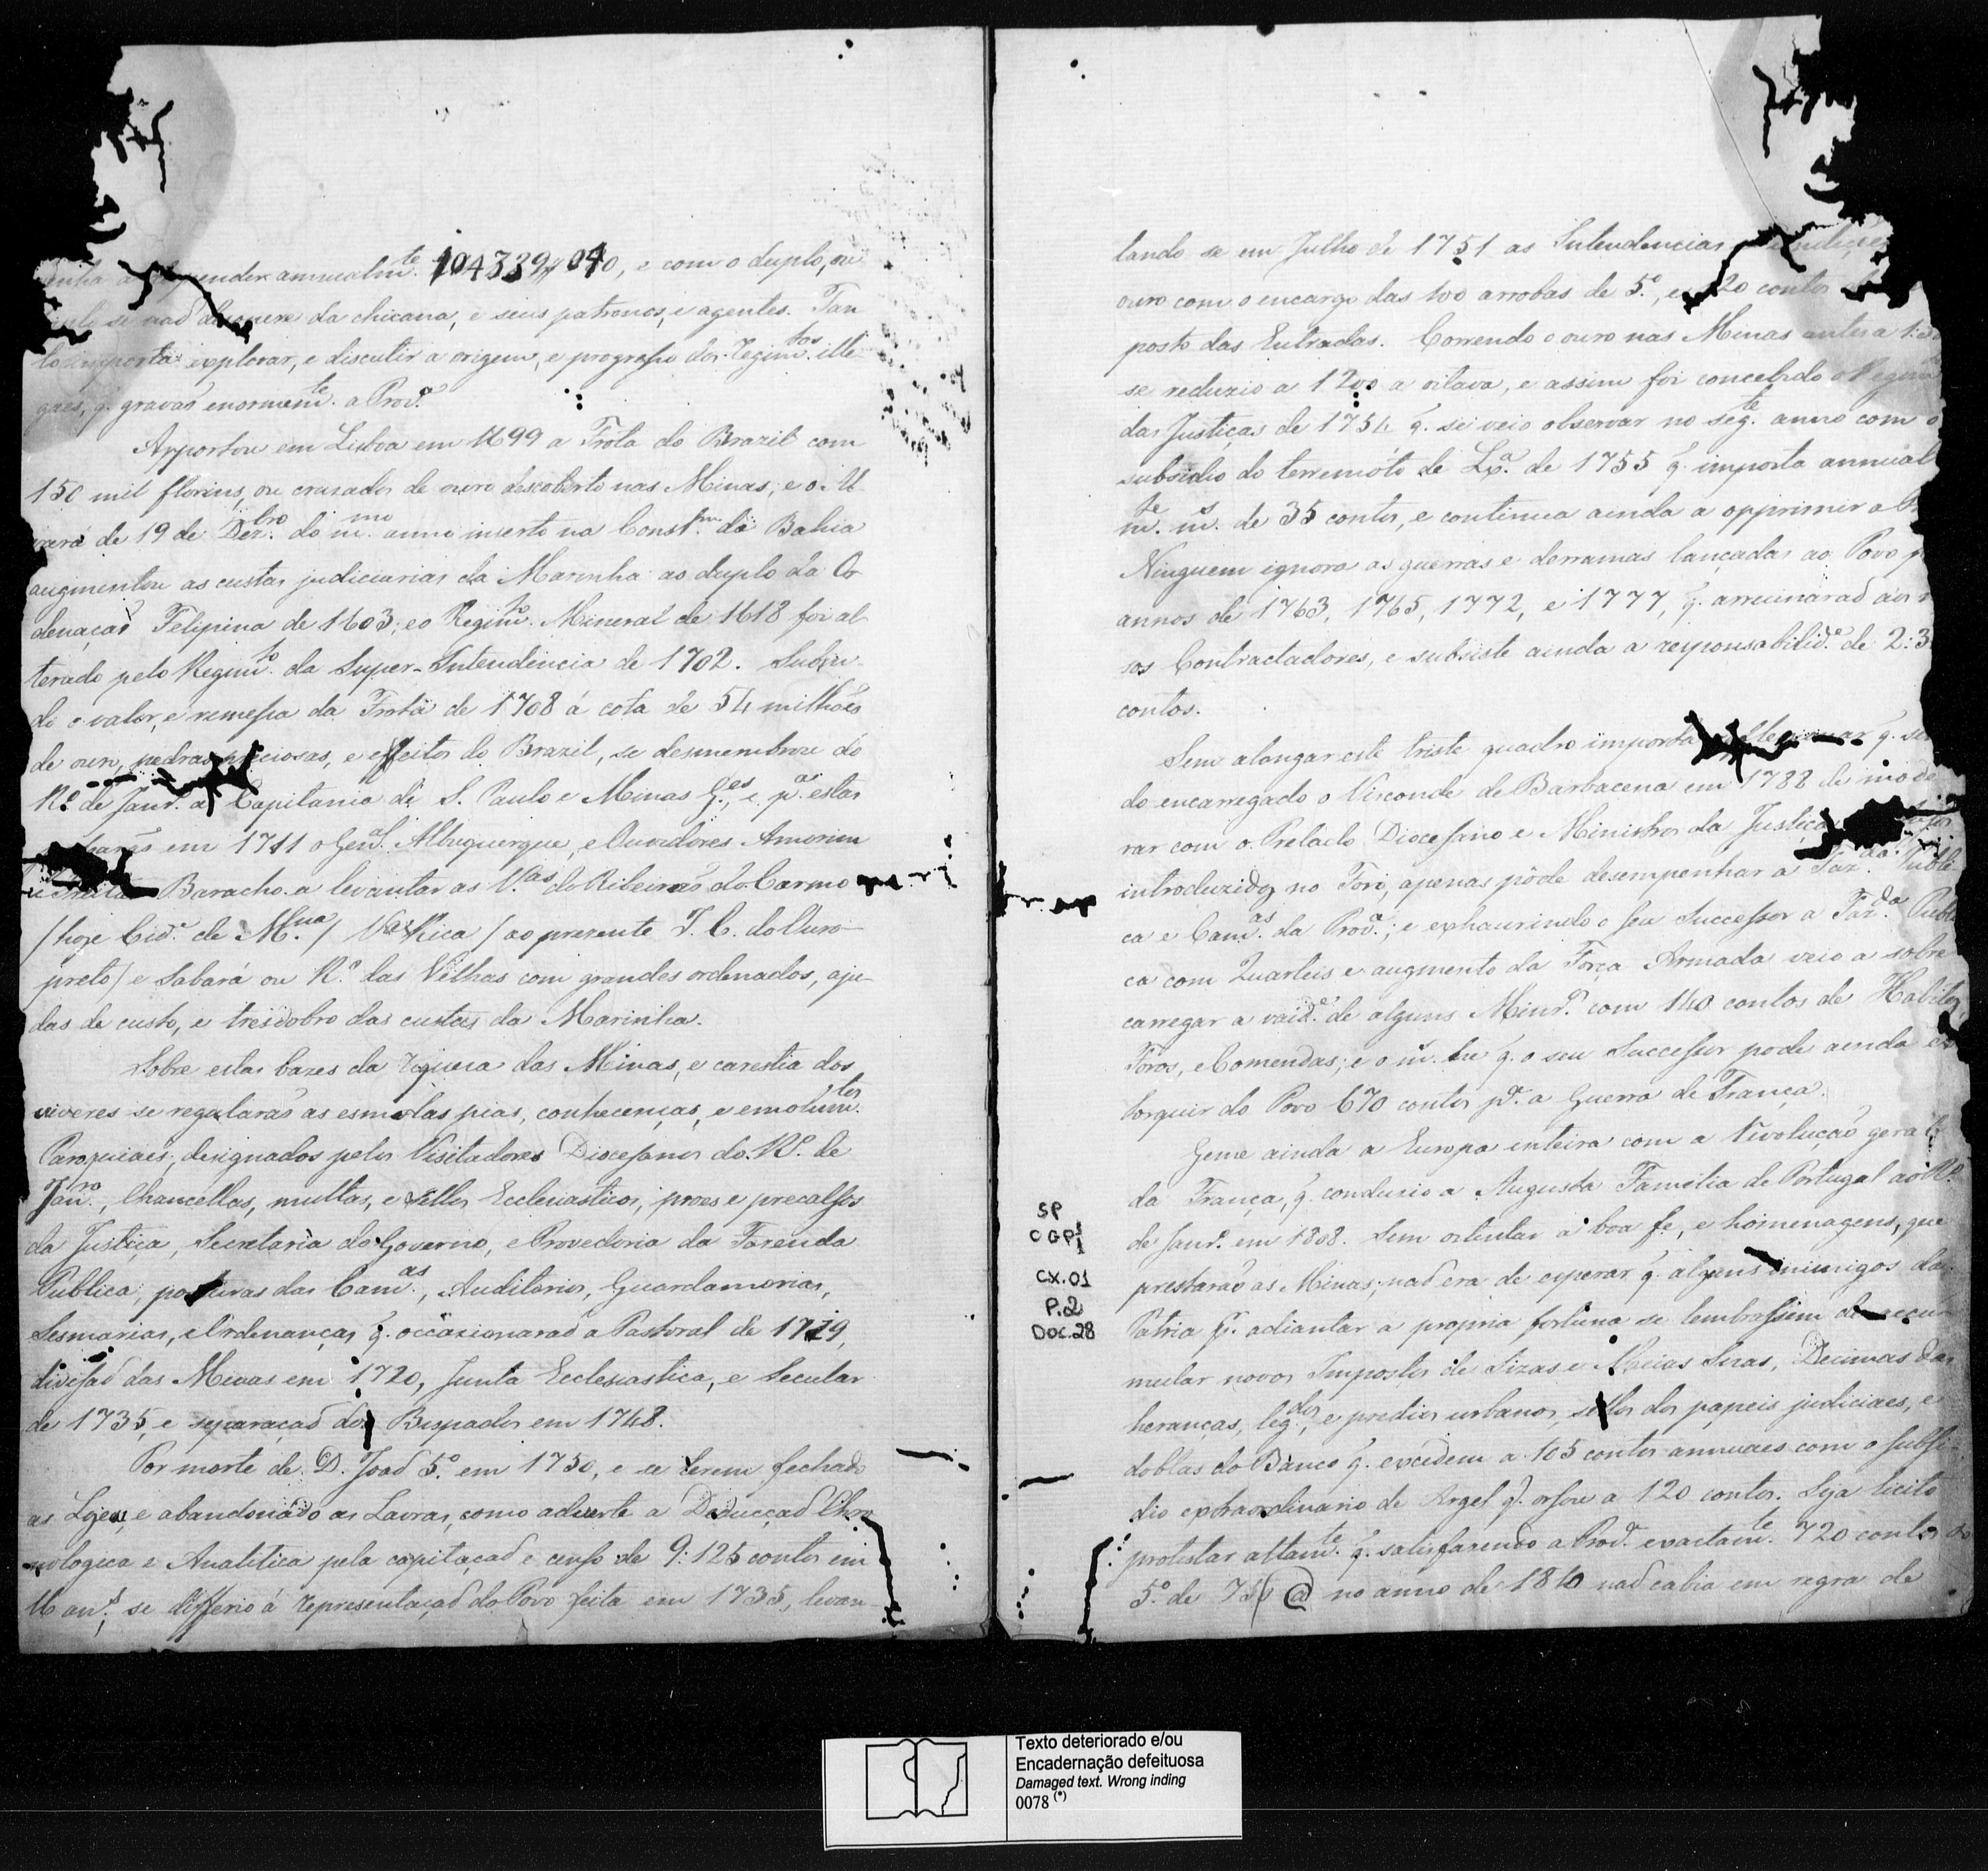 annualmte. 104339$040, e com o duplo, ou
se naõ da chicana, e seus patronos, e agentes. Tan
to importa explorar, e discutir a origem, e progresso dos Regimtos. ille
gaes, q. gravaõ enormemte. a Prova.
Apportou em Lisboa em 1699 a Frota do Brazil com
150 mil florins, ou cruzados de ouro descoberto nas Minas; e o Al
vará de 19 de Dezbro. do mmo. anno inserto na Constm. da Bahia
augmentou as custas judiciarias da Marinha ao duplo da Or
denaçaõ Felipina de 1603; e o Regimto. Mineral de 1618 foi al
terado pelo Regimto. da Super-Intendencia de 1702. Subin
do o valor, e remessa da Frota de 1708 á cota de 54 milhões
de ouro, pedras preciosas, e effeitos do Brazil, se desmembrou do
Ro. de Janro. a Capitania de S. Paulo e Minas Ges., e pa. estas
em 1711 o Genal. Albuquerque, e Ouvidores Amorim
Baracho a levantar as Vas. do Ribeiraõ do Carmo
/hoje Cide. de Mna./ Va. Rica /ao presente I. C. do Ouro
preto/ e Sabará ou Ro. das Velhas com grandes ordenados, aju
das de custo, e tresdobro das custas da Marinha.
Sobre estas bazes da riqueza das Minas, e carestia dos
viveres se regularaõ as esmolas pias, conhecenças, e emolumtos.
Paroquiaes, designados pelos Visitadores Diocesanos do Ro. de
Janro., Chancellas, multas, e sellos Ecclesiasticos, proes e precalsos
da Justiça, Secretaria do Governo, e Provedoria da Fazenda
Publica, posturas das Camas., Auditorios, Guardamorias,
Sesmarias, e Ordenanças q. occazionaraõ a Pastoral de 1719,
divisaõ das Minas em 1720, Junta Ecclesiastica, e Secular
de 1735, e separaçaõ dos Bispados em 1748.
Por morte de D. Joaõ 5o. em 1750, e se terem fechado
as Lojes, e abandonado as Lavras, como adverte a Deducçaõ Chro
nologica e Analitica pela capitaçaõ e censo de 9:125 contos em
16 ans. se differio á representaçaõ do Povo feita em 1735, levan
tando se em Julho de 1751 as Intendencias
ouro com o encargo das 100 arrobas de 5o., e 120 contos
posto das Entradas. Correndo o ouro nas Minas antes a
se reduzio a 1200 a oitava, e assim foi concebido o Regimto
das Justiças de 1754 q. se veio observar no segte. anno com o
subsidio do terremóto de Lxa. de 1755 q. importa annual
mte. ms. de 35 contos, e continua ainda a opprimir
Ninguem ignora as guerras e derramas lançadas ao Povo
annos de 1763, 1765, 1772, e 1777, q. arruinaraõ aos
sos Contractadores, e subsiste ainda a responsabilide. de 2:3
contos.
Sem alongar este triste quadro importa q. sen
do encarregado o Visconde de Barbacena em 1788 de mode
rar com o Prelado Diocesano e Ministros da Justiça
introduzidos no Foro, apenas pôde desempenhar a Fazda. Publi
ca e Camas. da Prova.; e exhaurindo o seu Successor a Fazda. Publi
ca com Quarteis e augmento da Força Armada veio a sobre
carregar a vaide. de alguns Minros. com 140 contos de Habitos,
Foros, e Comendas; e o m. fez q. o seu Successor pode ainda ex
torquir do Povo 670 contos pa. a Guerra de França.
Geme ainda a Europa inteira com a Revoluçaõ geral
da França, q. conduzio a Augusta Familia de Portugal ao Ro.
de Janro. em 1808. Sem ostentar a boa fe, e homenagens, que
prestaraõ as Minas, naõ era de esperar q. alguns inimigos da
Patria pa. adiantar a propria fortuna se lembrassem de accu
mular novos Impostos de Sizas e Meias Sizas, Decimas das
heranças, legdos., e predios urbanos, sellos dos papeis judiciaes, e
doblas do Banco q. excedem a 105 contos annuaes com o subsi
dio extraordinario de Argel q. orsou a 120 contos. Seja licito
protestar altamte. q. satisfazendo a Prova. exactamte. 720 contos do
5o. de 750 @ no anno de 1810 naõ cabia em regra de
SP
CGP1
CX.01
P.2
DOC.28
Texto deteriorado e/ou
Encadernação defeituosa
Damaged text. Wrong inding
0078 (*)